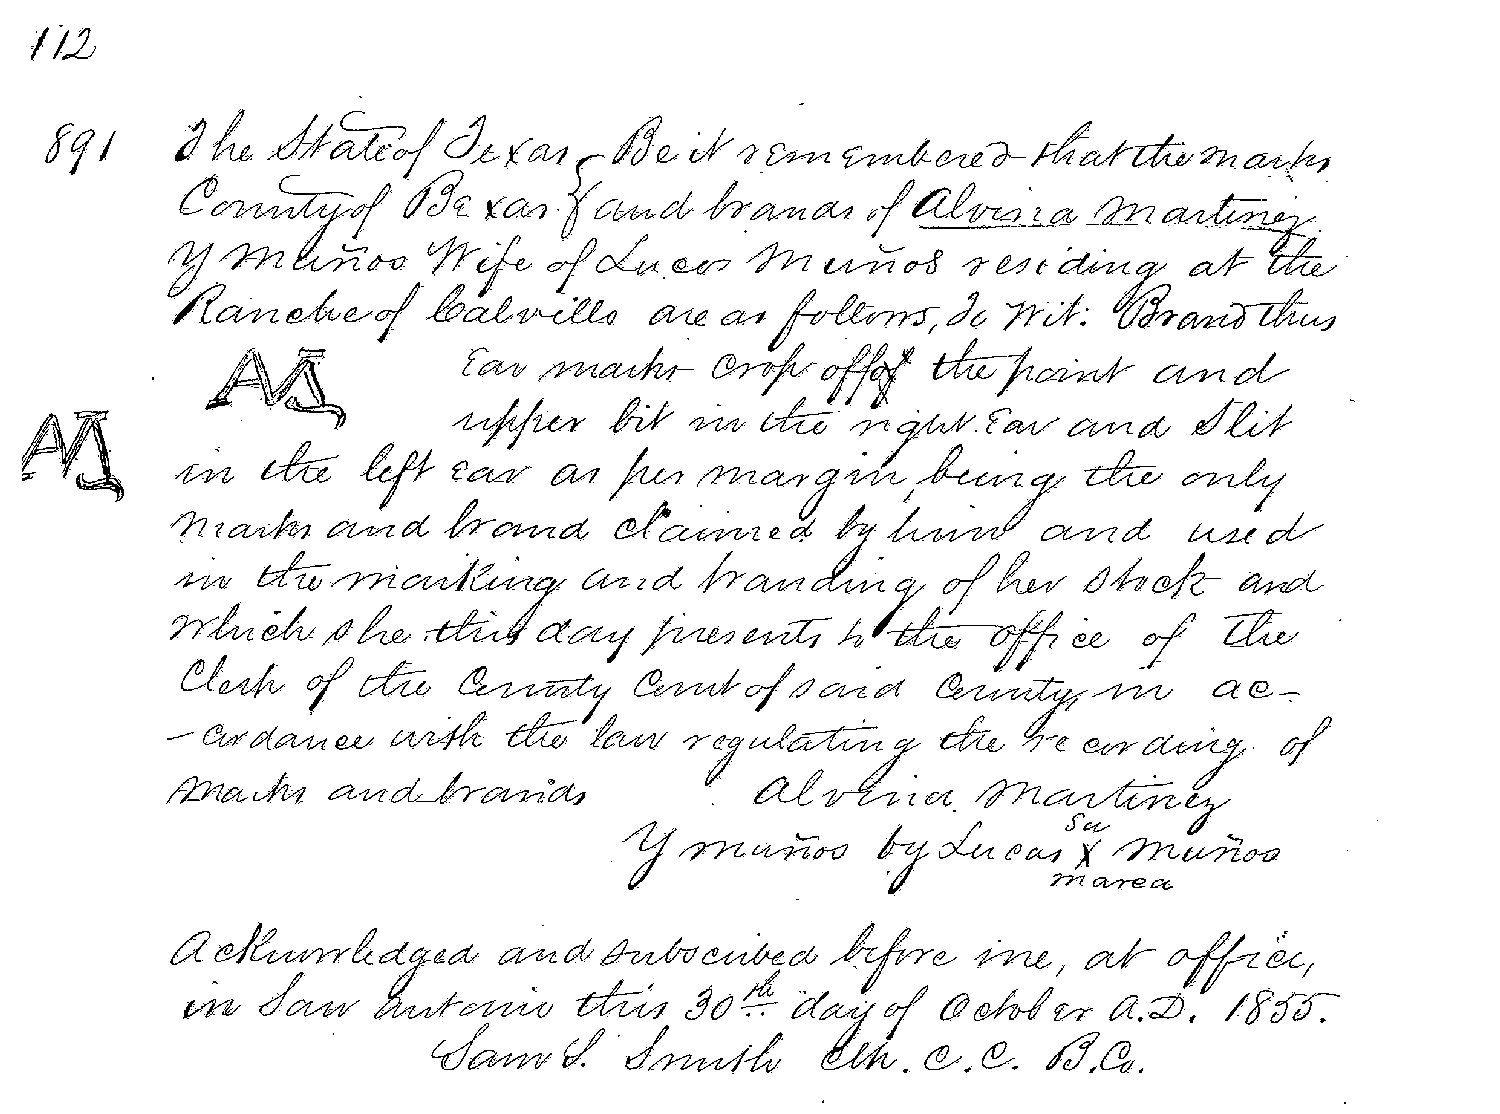 112
891 The State of Texas } Be it remembered that the marks
County of Bexar } and brands of Alvina Martinez
Y Muños Wife of Lucas Muños residing at the
Ranche of Calvillo are as follows, To Wit: Brand thus
Ear marks crop off of the point and
upper bit in the right Ear and Slit
in the left ear as per margin, being the only
marks and brand claimed by him and used
in the marking and branding of her stock and
which she this day presents to the office of the
Clerk of the County Court of said County, in ac-
-cordance with the law regulating the recording of
marks and brands Alvina Martinez
su
Y Muños by Lucas X Muños
marca
Acknowledged and subscribed before me, at office,
in San Antonio this 30th day of October A.D. 1855.
Sam S. Smith Clk. C. C. B. Co.